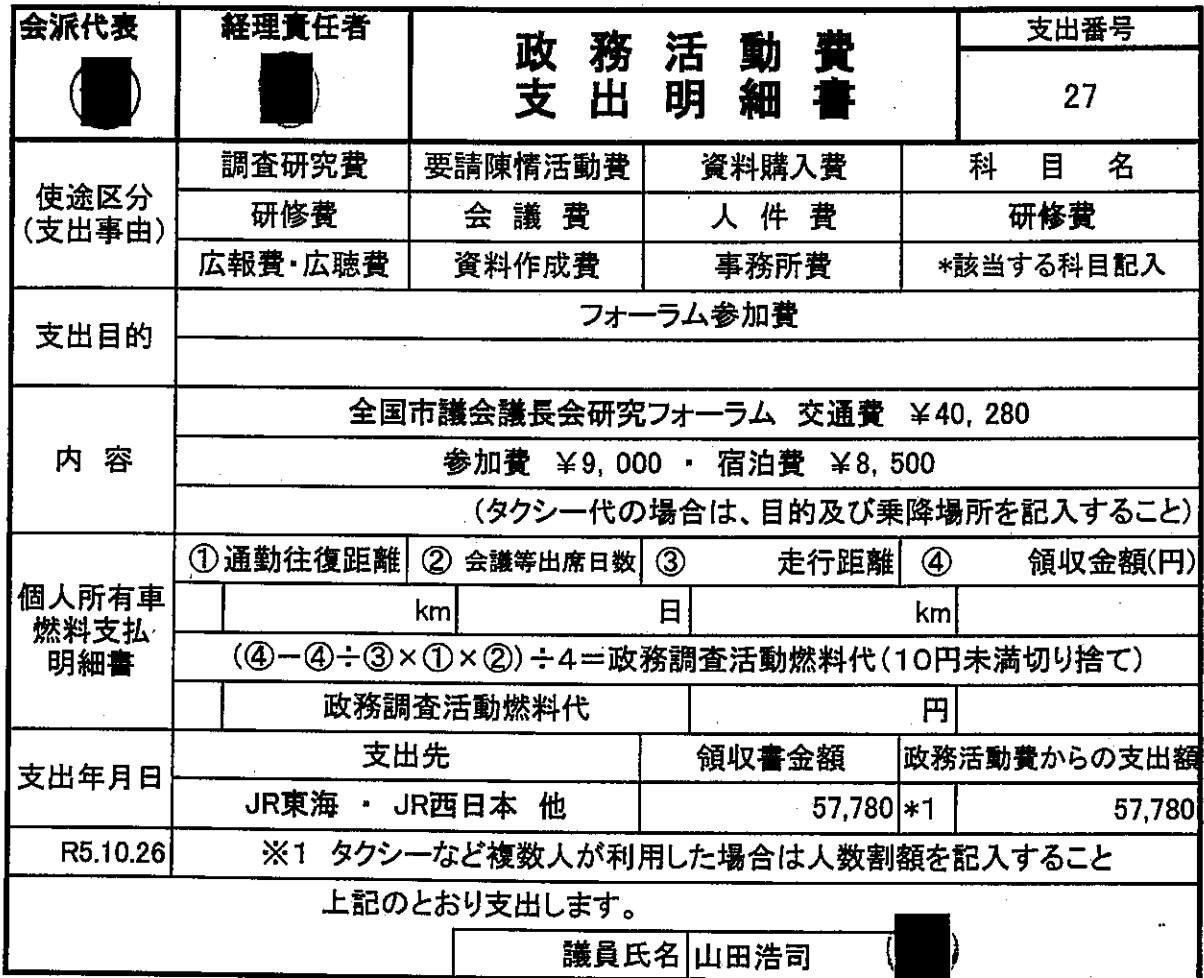 会派代表 経理責任者 政務活動費 支出番号
支出明細書 27
使途区分(支出事由) 調査研究費 要請陳情活動費 資料購入費 科目名
研修費 会議費 人件費 研修費
広報費・広聴費 資料作成費 事務所費 *該当する科目記入
支出目的 フォーラム参加費
内容 全国市議会議長会研究フォーラム 交通費 ¥40,280
参加費 ¥9,000 ・ 宿泊費 ¥8,500
(タクシー代の場合は、目的及び乗降場所を記入すること)
個人所有車燃料支払明細書 ①通勤往復距離 ② 会議等出席日数 ③ 走行距離 ④ 領収金額(円)
km 日 km
(④-④÷③×①×②)÷4=政務調査活動燃料代(10円未満切り捨て)
政務調査活動燃料代 円
支出年月日 支出先 領収書金額 政務活動費からの支出額
JR東海 ・ JR西日本 他 57,780 *1 57,780
R5.10.26 ※1 タクシーなど複数人が利用した場合は人数割額を記入すること
上記のとおり支出します。
議員氏名 山田浩司